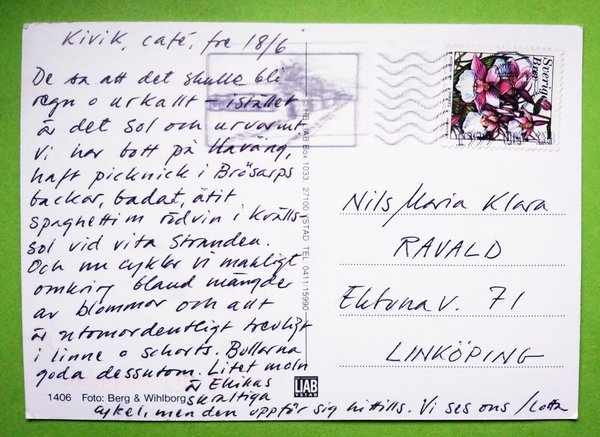 Kivik, café, fre 18/6
De sa att det skulle bli
regn o urkallt – istället
är det sol och urvarmt
Vi har bott på Haväng,
haft picknick i Brösarps
backar, badat, ätit
spaghetti m rödvin i kvälls-
sol vid vita stranden.
Och nu cyklar vi makligt
omkring bland mängder
av blommor och allt
är utomordentligt trevligt
i linne o schorts. Bullarna
goda dessutom. Litet moln
är Ellikas
skraltiga
cykel, men den uppför sig hittills. Vi ses ons / Lotta
Sverige
Brev
Nils/Maria/Klara
RAVALD
71
LINKÖPING
LIAB Box 1033 27100 YSTAD TEL 0411-15990
LIAB
YSTAD
1406 Foto: Berg & Wihlborg